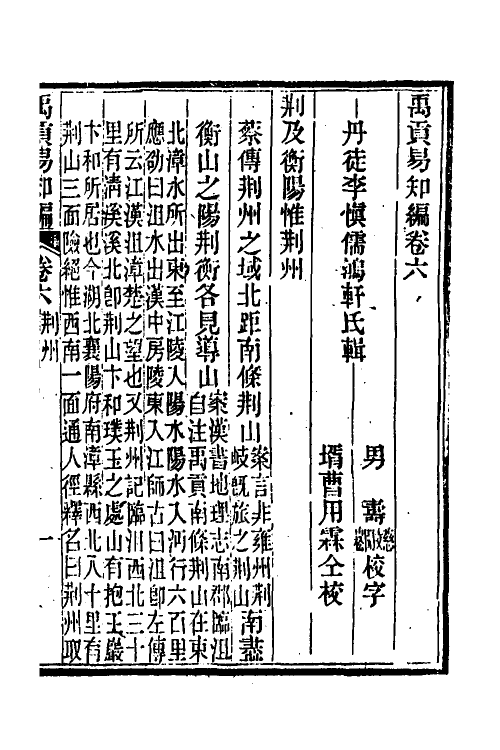 禹貢易知編卷六
丹徒李慎儒鴻軒氏輯
男 壽 校字
壻曹用霖仝校
荆及衡陽惟荆州
蔡傳荆州之域北距南條荆山案言非雍州荆岐旣旅之荆山南盡
衡山之陽荆衡各見導山案漢書地理志南郡臨沮
自注禹貢南條荆山在東
北漳水所出東至江陵入陽水陽水入沔行六百里
應劭曰沮水出漢中房陵東入江師古曰沮卽左傳
所云江漢沮漳楚之望也又荆州記臨沮西北三十
里有淸溪溪北卽荆山卞和璞玉之處山有抱玉巖
卞和所居也今湖北襄陽府南漳縣西北八十里有
荆山三面險絕惟西南一面通人徑釋名曰荆州取
禹貢易知編 卷六 荆州 一